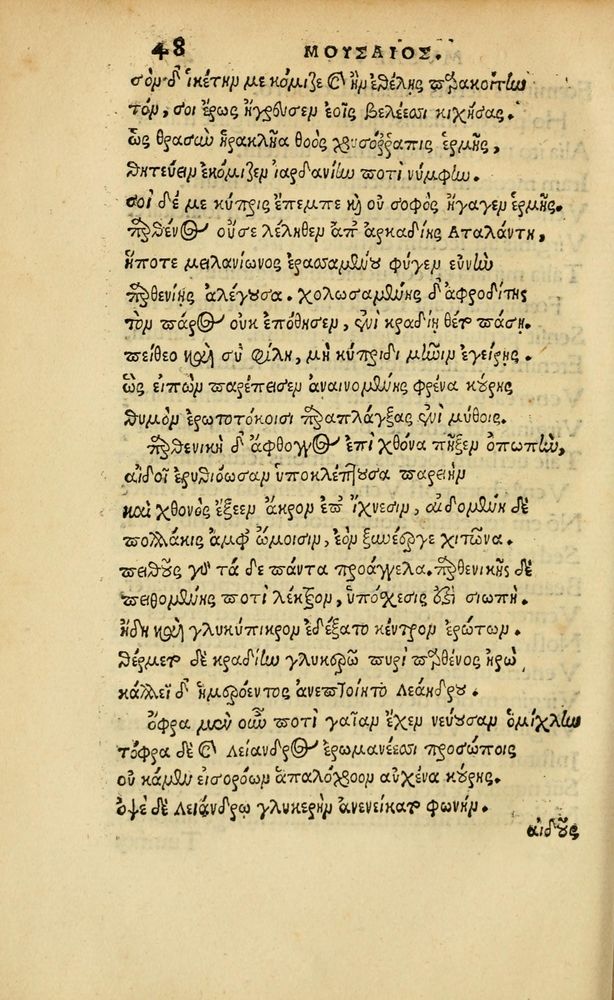 48 ΜΟΥΣΑΙΟΣ.
σὸν δ' ἱκέτην με κόμιζε καὶ ἢν ἐθέλῃς παρακοίτην
τόν, σοι ἔρως ἤγρευσεν ἑοῖς βελέεσσι κιχήσας.
ὡς θρασὺν ἡρακλῆα θοὸς χρυσόῤῥαπις ἑρμῆς,
θητεύειν ἐκόμιζεν ἰαρδανίην ποτὶ νύμφην.
σοὶ δέ με κύπρις ἔπεμπε καὶ οὐ σοφὸς ἤγαγεν ἑρμῆς.
παρθένος οὔ σε λέληθεν ἀπ' ἀρκαδίης Αταλάντη,
ἥποτε μειλανίωνος ἐρασσαμένου φύγεν εὐνὴν
παρθενίης ἀλέγουσα. χολωσαμένης δ' ἀφροδίτης
τὸν πάρος οὐκ ἐπόθησεν, ἐνὶ κραδίῃ θέτο πάσῃ.
πείθεο καὶ σὺ φίλη, μὴ κύπριδι μῆνιν ἐγείρῃς.
ὣς εἰπὼν παρέπεισεν ἀναινομένης φρένα κούρης
θυμὸν ἐρωτοτόκοισι παραπλάγξας ἐνὶ μύθοις.
παρθενικὴ δ' ἄφθογγος ἐπὶ χθόνα πῆξεν ὀπωπὴν,
αἰδοῖ ἐρυθιόωσαν ὑποκλέπτουσα παρειὴν
καὶ χθονὸς ἔξεεν ἄκρον ἐπ' ἴχνεσιν, αἰδομένη δὲ
πολλάκις ἀμφ' ὤμοισιν, ἑὸν ξυνέεργε χιτῶνα.
πειθοῦς γὰρ τά δε πάντα προάγγελα. παρθενικῆς δὲ
πειθομένης ποτὶ λέκτρον, ὑπόχεσις ἐστὶ σιωπή.
ἤδη καὶ γλυκύπικρον ἐδέξατο κέντρον ἐρώτων.
θέρμετο δὲ κραδίην γλυκερῷ πυρὶ παρθένος ἡρὼ
κάλλεϊ δ' ἱμερόεντος ἀνεπτοίητο Λεάνδρου.
ὄφρα μὲν οὖν ποτὶ γαῖαν ἔχεν νεύουσαν ὁμίχλην
τόφρα δὲ καὶ Λείανδρος ἐρωμανέεσσι προσώποις
οὐ κάμεν εἰσορόων ἁπαλόχροον αὐχένα κούρης.
ὀψὲ δὲ Λειάνδρῳ γλυκερὴν ἀνενείκατο φωνήν.
αἰδοῦς